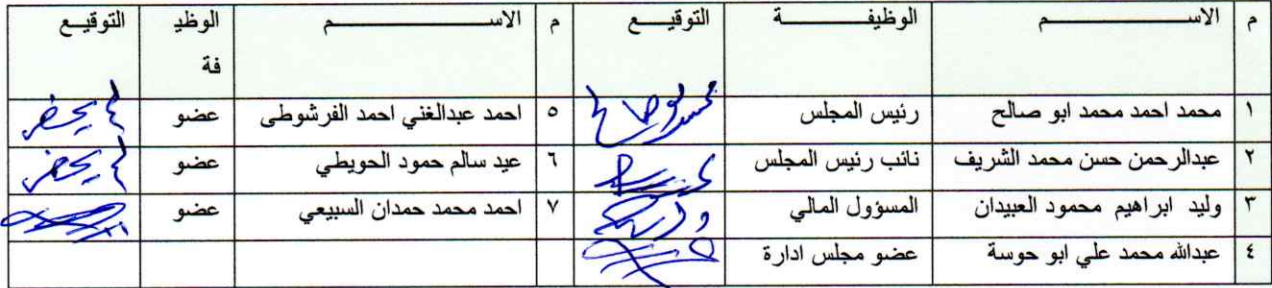 م الاســـــــم الوظيفـــــــة التوقيـــع م الاســـــــم الوظيفة التوقيـع
١ محمد احمد محمد ابو صالح رئيس المجلس ٥ احمد عبدالغني احمد الفرشوطى عضو لم يحضر
٢ عبدالرحمن حسن محمد الشريف نائب رئيس المجلس ٦ عيد سالم حمود الحويطي عضو لم يحضر
٣ وليد ابراهيم محمود العبيدان المسؤول المالي ٧ احمد محمد حمدان السبيعي عضو
٤ عبدالله محمد علي ابو حوسة عضو مجلس ادارة